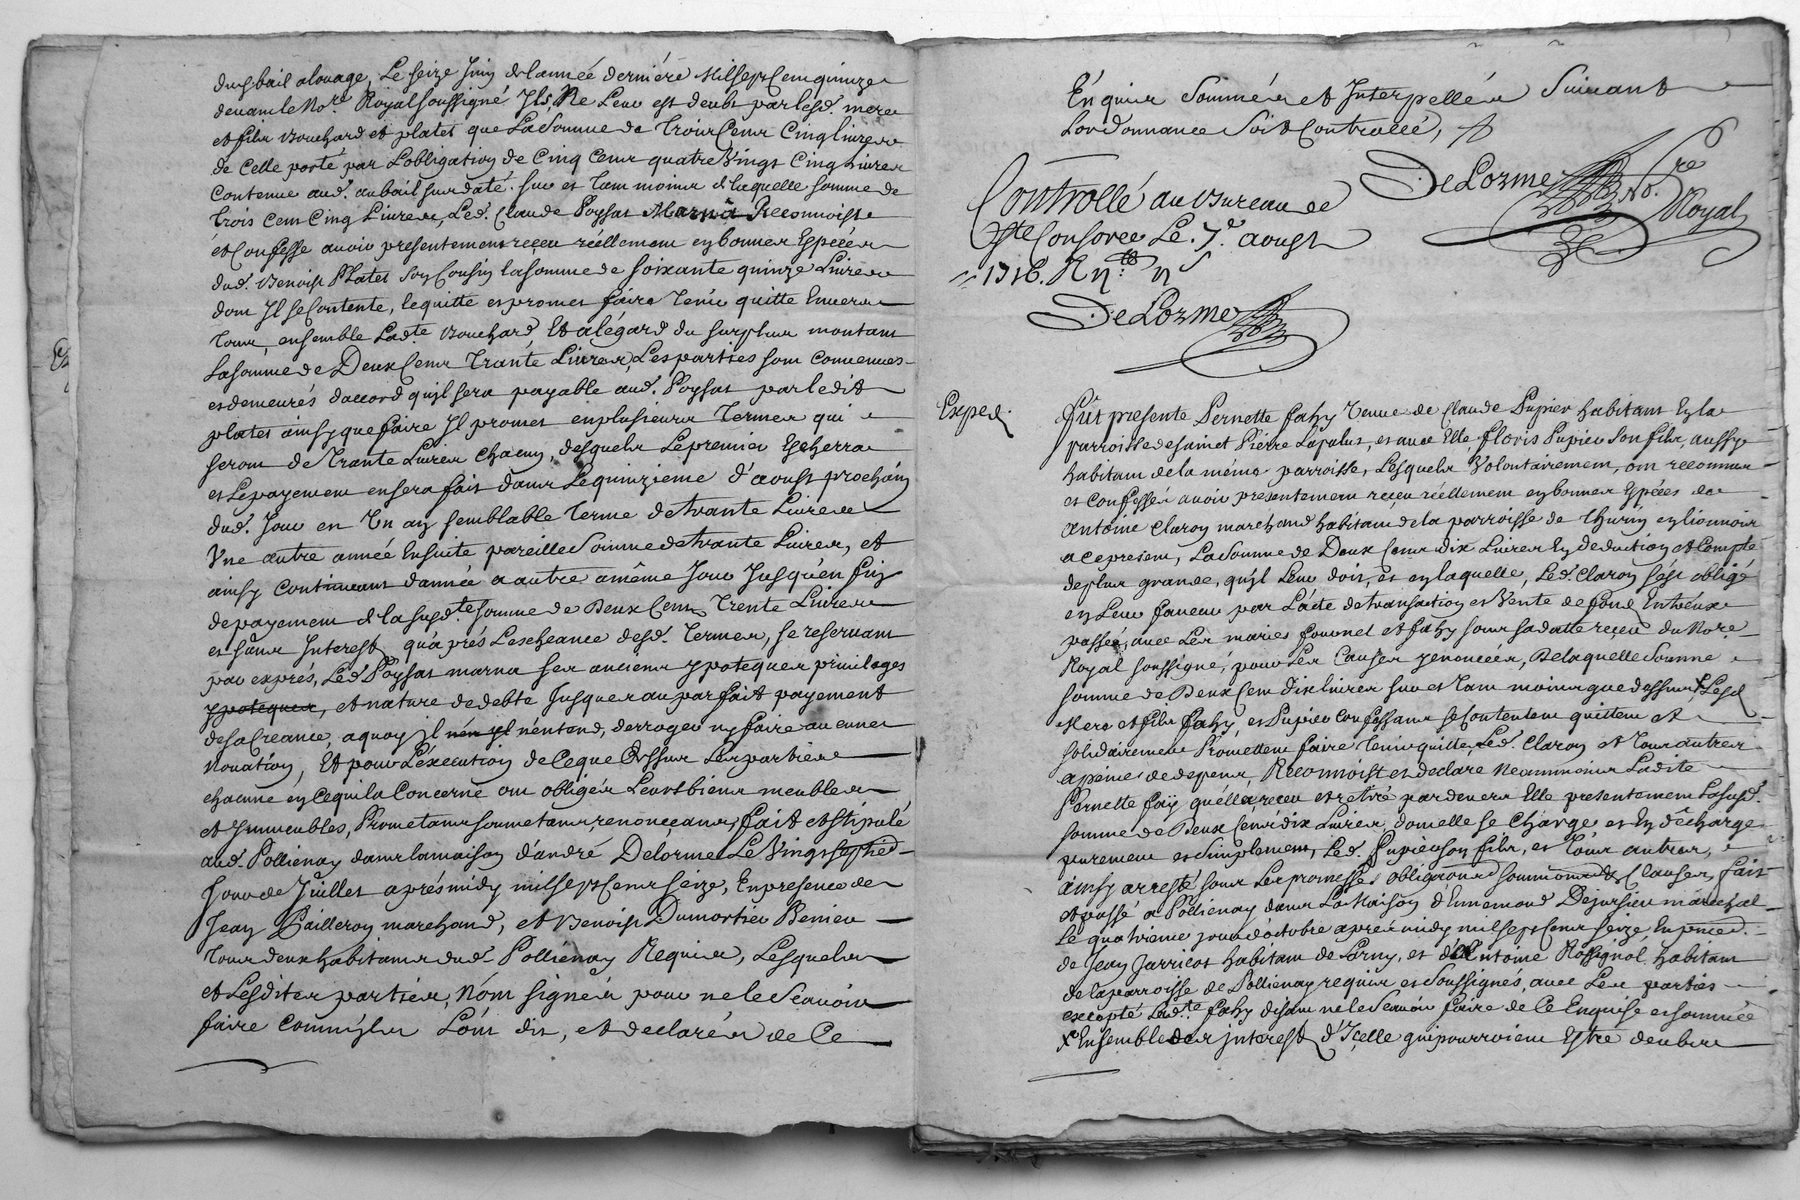 dud. bail a louage, Le seize Juin de lannée derniére Milsept Cent quinze
devant le Nore. Royal soussigné Ils Ne Leur est deubt par lesd. mere
et fils Bouchard et plates que La Somme de Trois Cens Cinq livres
de Celle porté par Lobligation de Cinq Cens quatre Vingt Cinq Livres
Contenue aud. aubail sur daté. sur et tant moins de laquelle somme de
Trois Cent Cinq Livres, Led. Claude Poysat Marna Reconnoist
et Confesse avoir presentement receu réellement en bonnes Espéces
dud. Benoist Plates son Cousin la somme de soixante quinze Livres
dont Il se Contente, le quitte et promet faire tenir quitte Envers
tous, ensemble Lad.te Bouchard, Et a légard du surplus montant
La somme de Deux Cens Trante Livres, Les parties sont Convenues
et demeurés daccord quil sera payable aud. Poysat par ledit
plates ainsy que faire Il promet en plusieurs Termes qui
seront de Trante Livres Chacun, desquels Le premier Escherra
et Le payement en sera fait dans Le quinzieme d'aoust prochain
dud. Jour en Un an semblable Terme de trante Livres
Une autre année Ensuite pareille Somme de trante Livres, et
ainsy continuant d'année a autre a même Jour Jusqu'en fin
de payement de la susd.te somme de Deux Cens Trente Livres
et sans Interest, qu'aprés Lescheance desd. Termes, se reservant
par exprés, Led. Poysat marna ses anciens ypoteques privileges
ypoteques, et nature de debte Jusques au parfait payement
de sa Creance, a quoy il nén yl n'entend, derroger ny faire aucunes
Novation, Et pour L'éxecution de Ceque Dessus Les parties
chacune en Cequi la Concerne ont obligés Leurs biens meubles
et Immeubles, Promettans soumettans, renonceans, fait et stipulé
aud. Pollienay dans la maison d'andré Delorme Le Vingt sept.e
Jour de Juillet aprés midy mil sept Cens seize, En presence de
Jean Pailleron marchand, et Benoist Dumortier Benier
tous deux habitans dud. Polliénay Requis, Lesquels
et Lesdites parties, Nónt signés pour ne le Scavoir
faire Comm'ils L'ont dit, et declarés de Ce
Enquis Sommés et Interpellés Suivant
Lordonnance Soit Controllé,
DeLorme No.re Royal
Controllé au Bureau de
Ste Consorce Le. 7e. aoust
1716.
DeLorme
Exped.
Fût presente Pernette fahy Veuve de Claude Pupier habitant En la
parroisse de sainct Pierre Lapalus, et avec Elle floris Pupier son fils, aussy
habitant de la méme parroisse, Lesquels Volontairement, ont reconnus
et Confessé avoir presentement reçeu réellement en bonnes Espéces de
antoine Claron marchand habitant de la parroisse de Thurin en lionnois
a ce present, La Somme de Deux Cens dix Livres En deduction et Compte
de plus grande, quil Leur doit, et en laquelle, Led. Claron s'ést obligé
en Leur faveur par L'acte de transaction et Vente de fond Entreux
passé, avec Les mariés founel et fahy sous sa datte receu du Nore.
Royal soussigné, pour Les Causes y enoncées, De laquelle Somme
somme de Deux Cens dix livres sur et tant moins que dessus X Lesd.
Mere et fils fahy, et Pupier Confessans se Contentent quittent et
solidairement Promettent faire tenir quitte Led. Claron et tous autres
a peines de depens, Reconnoist et declare Neantmoins Ladite
Pernette faÿ quélle a receu et retiré pardevers Elle presentement La susd.
somme de Deux Cens dix Livres, dont elle se Charge et En décharge
purement et simplement, Led. Pupier son fils, et tous autres,
Ainsy arresté sous Les promesses obligations soumissions & Clauses, fait
et passé a Pollienay dans La Maison d'Ennemond Dejursieu maréchal
Le quatrieme jour d'octobre aprés midy mil sept Cens seize, En prnce.
de Jean Jarricot habitant de Larny, et d'Antoine Rossignol habitant
de la parroisse de Pollienay requis, et Soussignés, avec Les parties
excepté Lad.te fahy disant ne le Scavoir faire de Ce Enquise et sommée
X Ensemble des jnterest d'Içelle qui pourroient Estre deubs